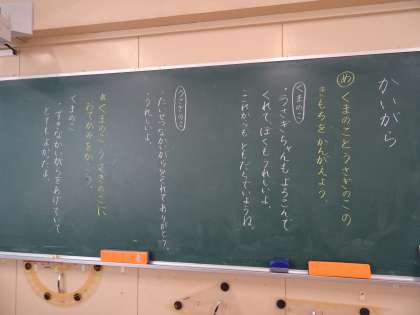 かいがら
め くまのことうさぎのこの
きもちをかんがえよう。
くまのこ
・うさぎちゃんもよろこんで
くれて、ぼくもうれしいよ。
これからも ともだちでいようね。
うさぎのこ
・たいせつなかいがらをくれてありがとう。
・うれしいよ。
くまのこ うさぎのこに
おてがみをかこう。
くまのこ
・すきなかいがらをあげていて
とてもよかったよ。